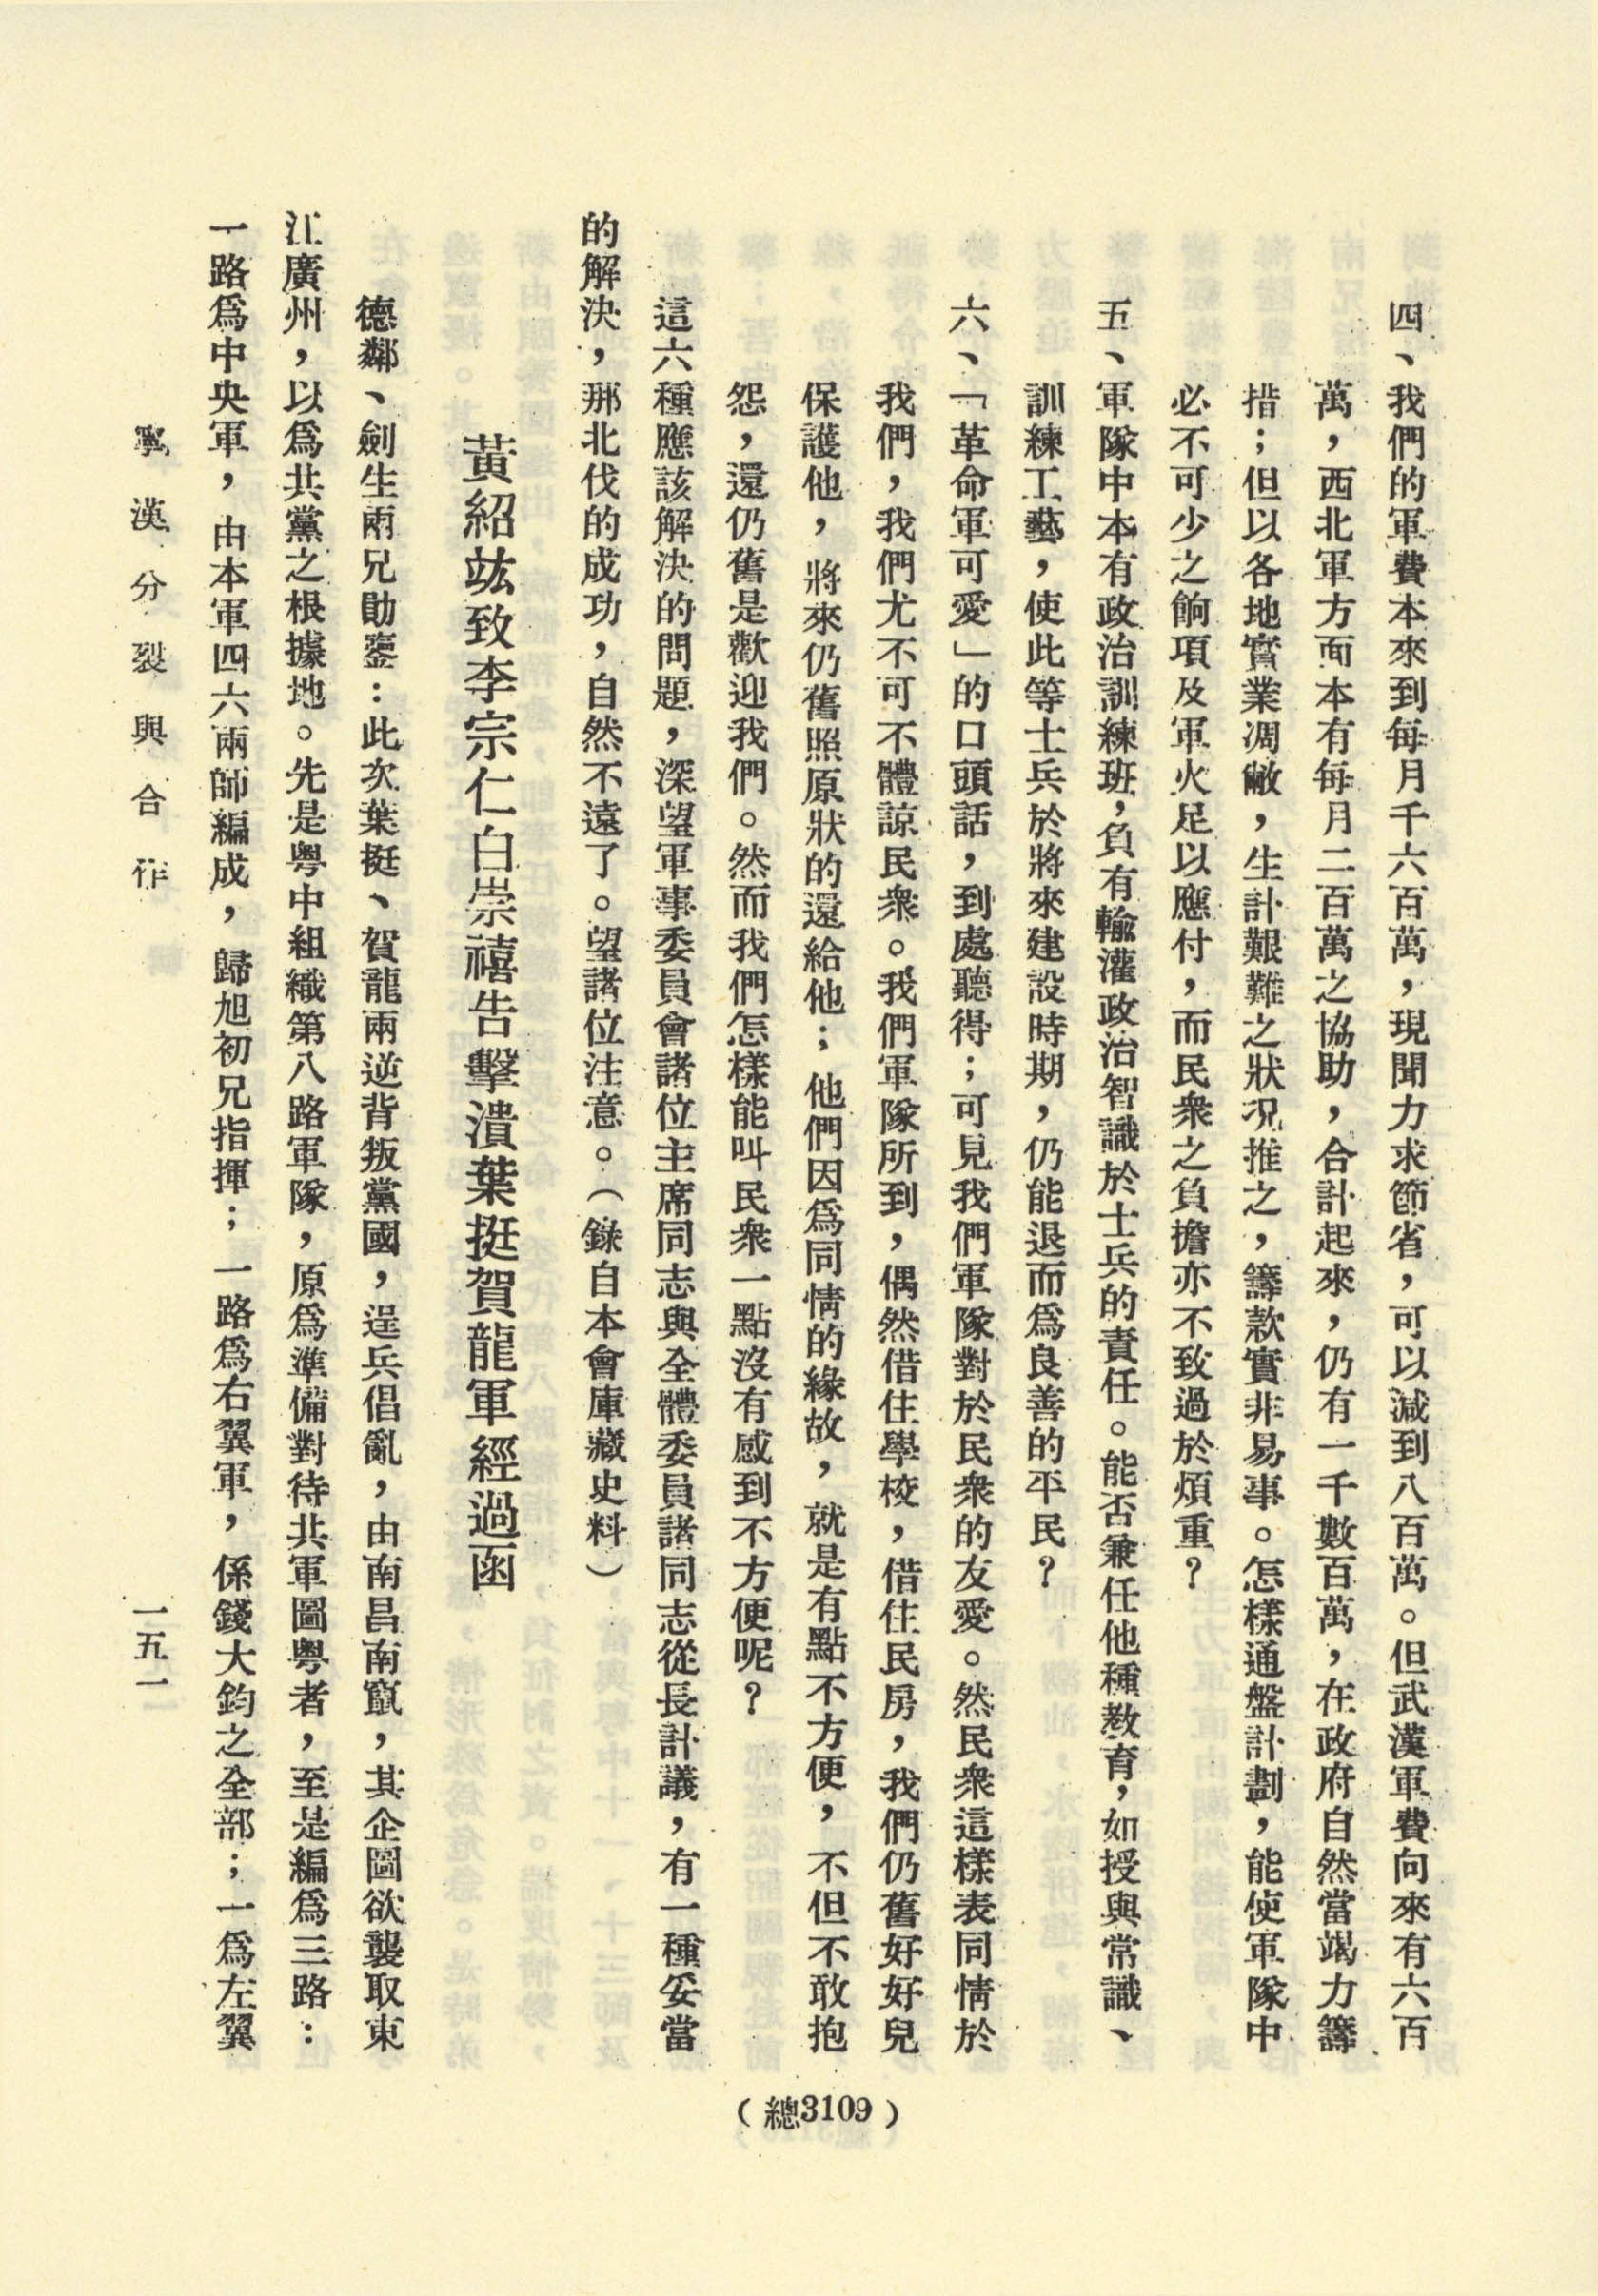 四、我們的軍費本來到每月千六百萬，現聞力求節省，可以減到八百萬。但武漢軍費向來有六百
萬，西北軍方面本有每月二百萬之協助，合計起來，仍有一千數百萬，在政府自然當竭力籌
措；但以各地實業凋敝，生計艱難之狀況推之，籌款實非易事。怎樣通盤計劃，能使軍隊中
必不可少之餉項及軍火足以應付，而民衆之負擔亦不致過於煩重？
五、軍隊中本有政治訓練班，負有輸灌政治智識於士兵的責任。能否兼任他種教育，如授與常識、
訓練工藝，使此等士兵於將來建設時期，仍能退而爲良善的平民？
六、「革命軍可愛」的口頭話，到處聽得；可見我們軍隊對於民衆的友愛。然民衆這樣表同情於
我們，我們尤不可不體諒民衆。我們軍隊所到，偶然借住學校，借住民房，我們仍舊好好兒
保護他，將來仍舊照原狀的還給他；他們因爲同情的緣故，就是有點不方便，不但不敢抱
怨，還仍舊是歡迎我們。然而我們怎樣能叫民衆一點沒有感到不方便呢？
這六種應該解決的問題，深望軍事委員會諸位主席同志與全體委員諸同志從長計議，有一種妥當
的解決，那北伐的成功，自然不遠了。望諸位注意。（錄自本會庫藏史料）
黃紹竑致李宗仁白崇禧告擊潰葉挺賀龍軍經過函
德鄰、劍生兩兄勛鑒：此次葉挺、賀龍兩逆背叛黨國，逞兵倡亂，由南昌南竄，其企圖欲襲取東
江廣州，以爲共黨之根據地。先是粤中組織第八路軍隊，原爲準備對待共軍圖粤者，至是編爲三路：
一路爲中央軍，由本軍四六兩師編成，歸旭初兄指揮；一路爲右翼軍，係錢大鈞之全部；一爲左翼
寧漢分裂與合作
一五一
（總3109）